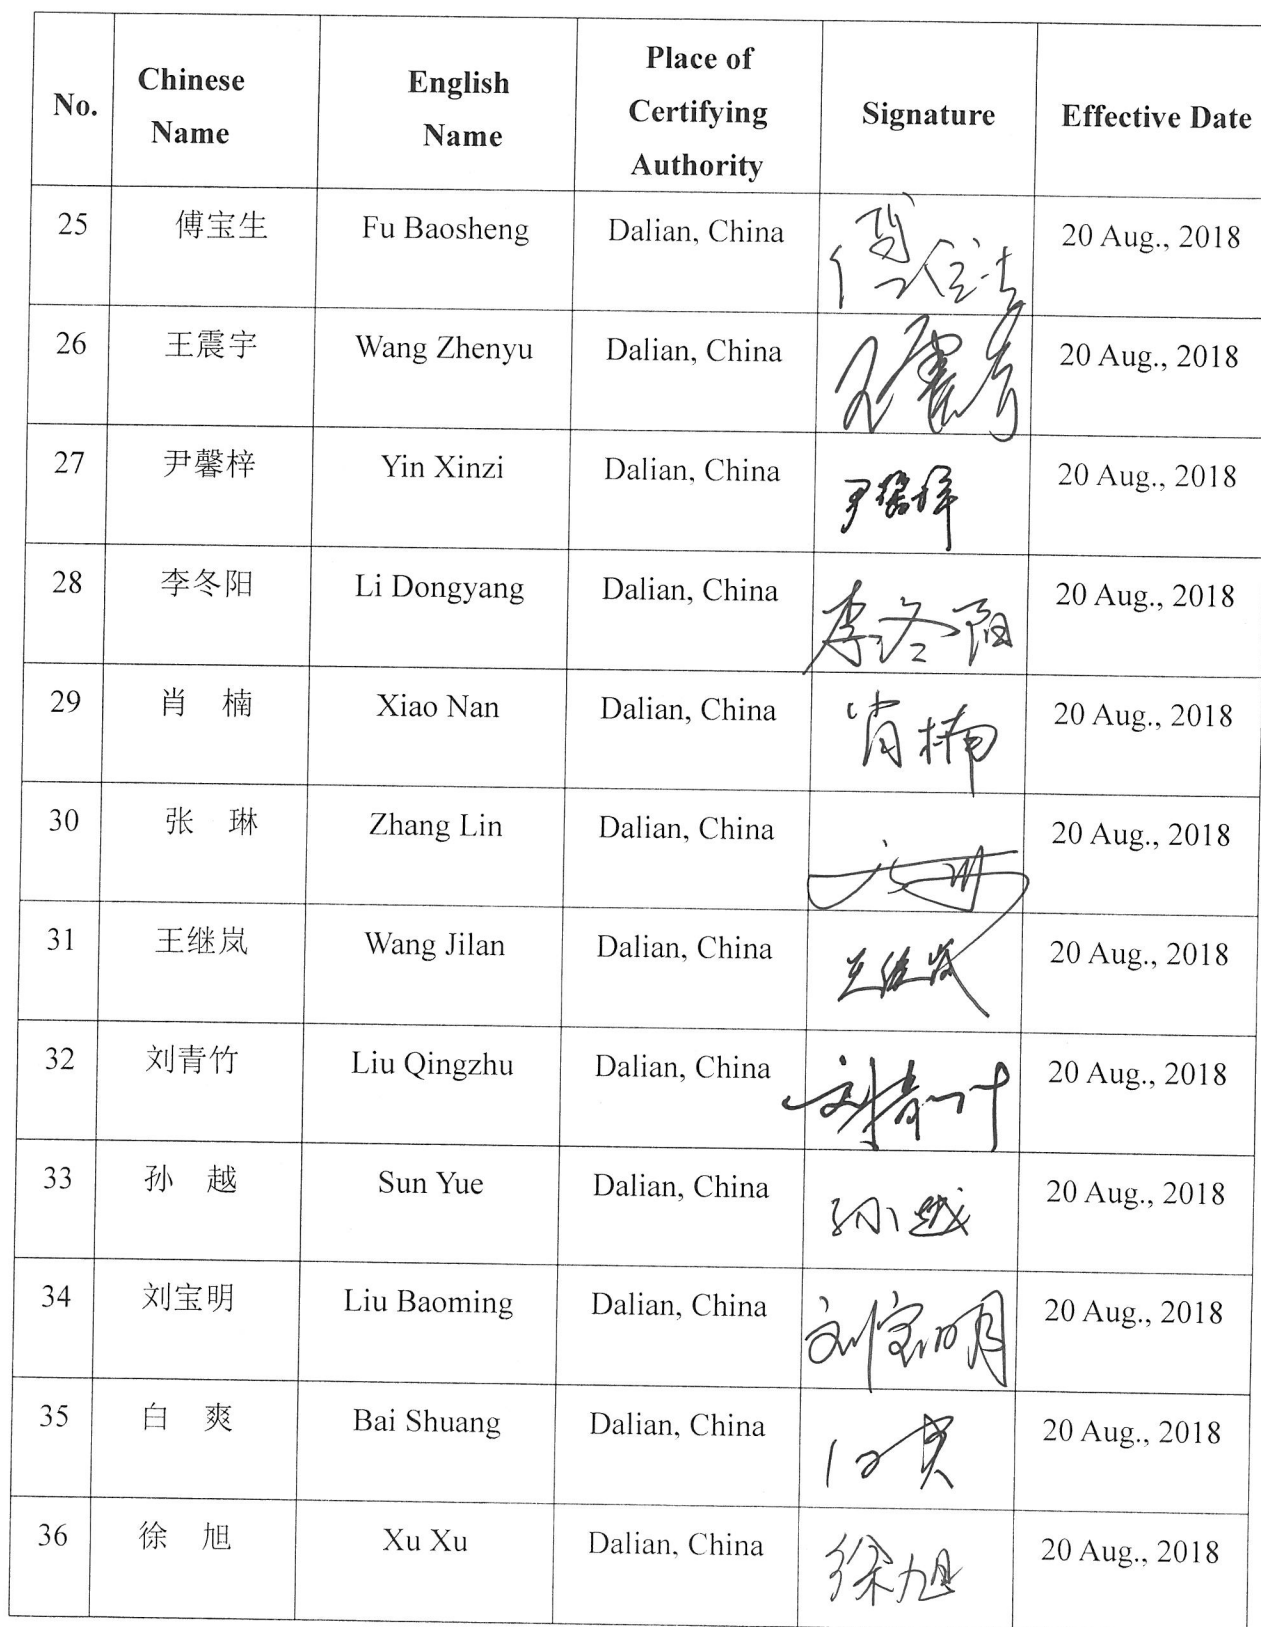 No. Chinese Name English Name Place of Certifying Authority Signature Effective Date
25 傅宝生 Fu Baosheng Dalian, China 20 Aug., 2018
26 王震宇 Wang Zhenyu Dalian, China 王震宇 20 Aug., 2018
27 尹馨梓 Yin Xinzi Dalian, China 尹馨梓 20 Aug., 2018
28 李冬阳 Li Dongyang Dalian, China 李冬阳 20 Aug., 2018
29 肖 楠 Xiao Nan Dalian, China 肖楠 20 Aug., 2018
30 张 琳 Zhang Lin Dalian, China 20 Aug., 2018
31 王继岚 Wang Jilan Dalian, China 王继岚 20 Aug., 2018
32 刘青竹 Liu Qingzhu Dalian, China 刘青竹 20 Aug., 2018
33 孙 越 Sun Yue Dalian, China 孙越 20 Aug., 2018
34 刘宝明 Liu Baoming Dalian, China 刘宝明 20 Aug., 2018
35 白 爽 Bai Shuang Dalian, China 白爽 20 Aug., 2018
36 徐 旭 Xu Xu Dalian, China 徐旭 20 Aug., 2018